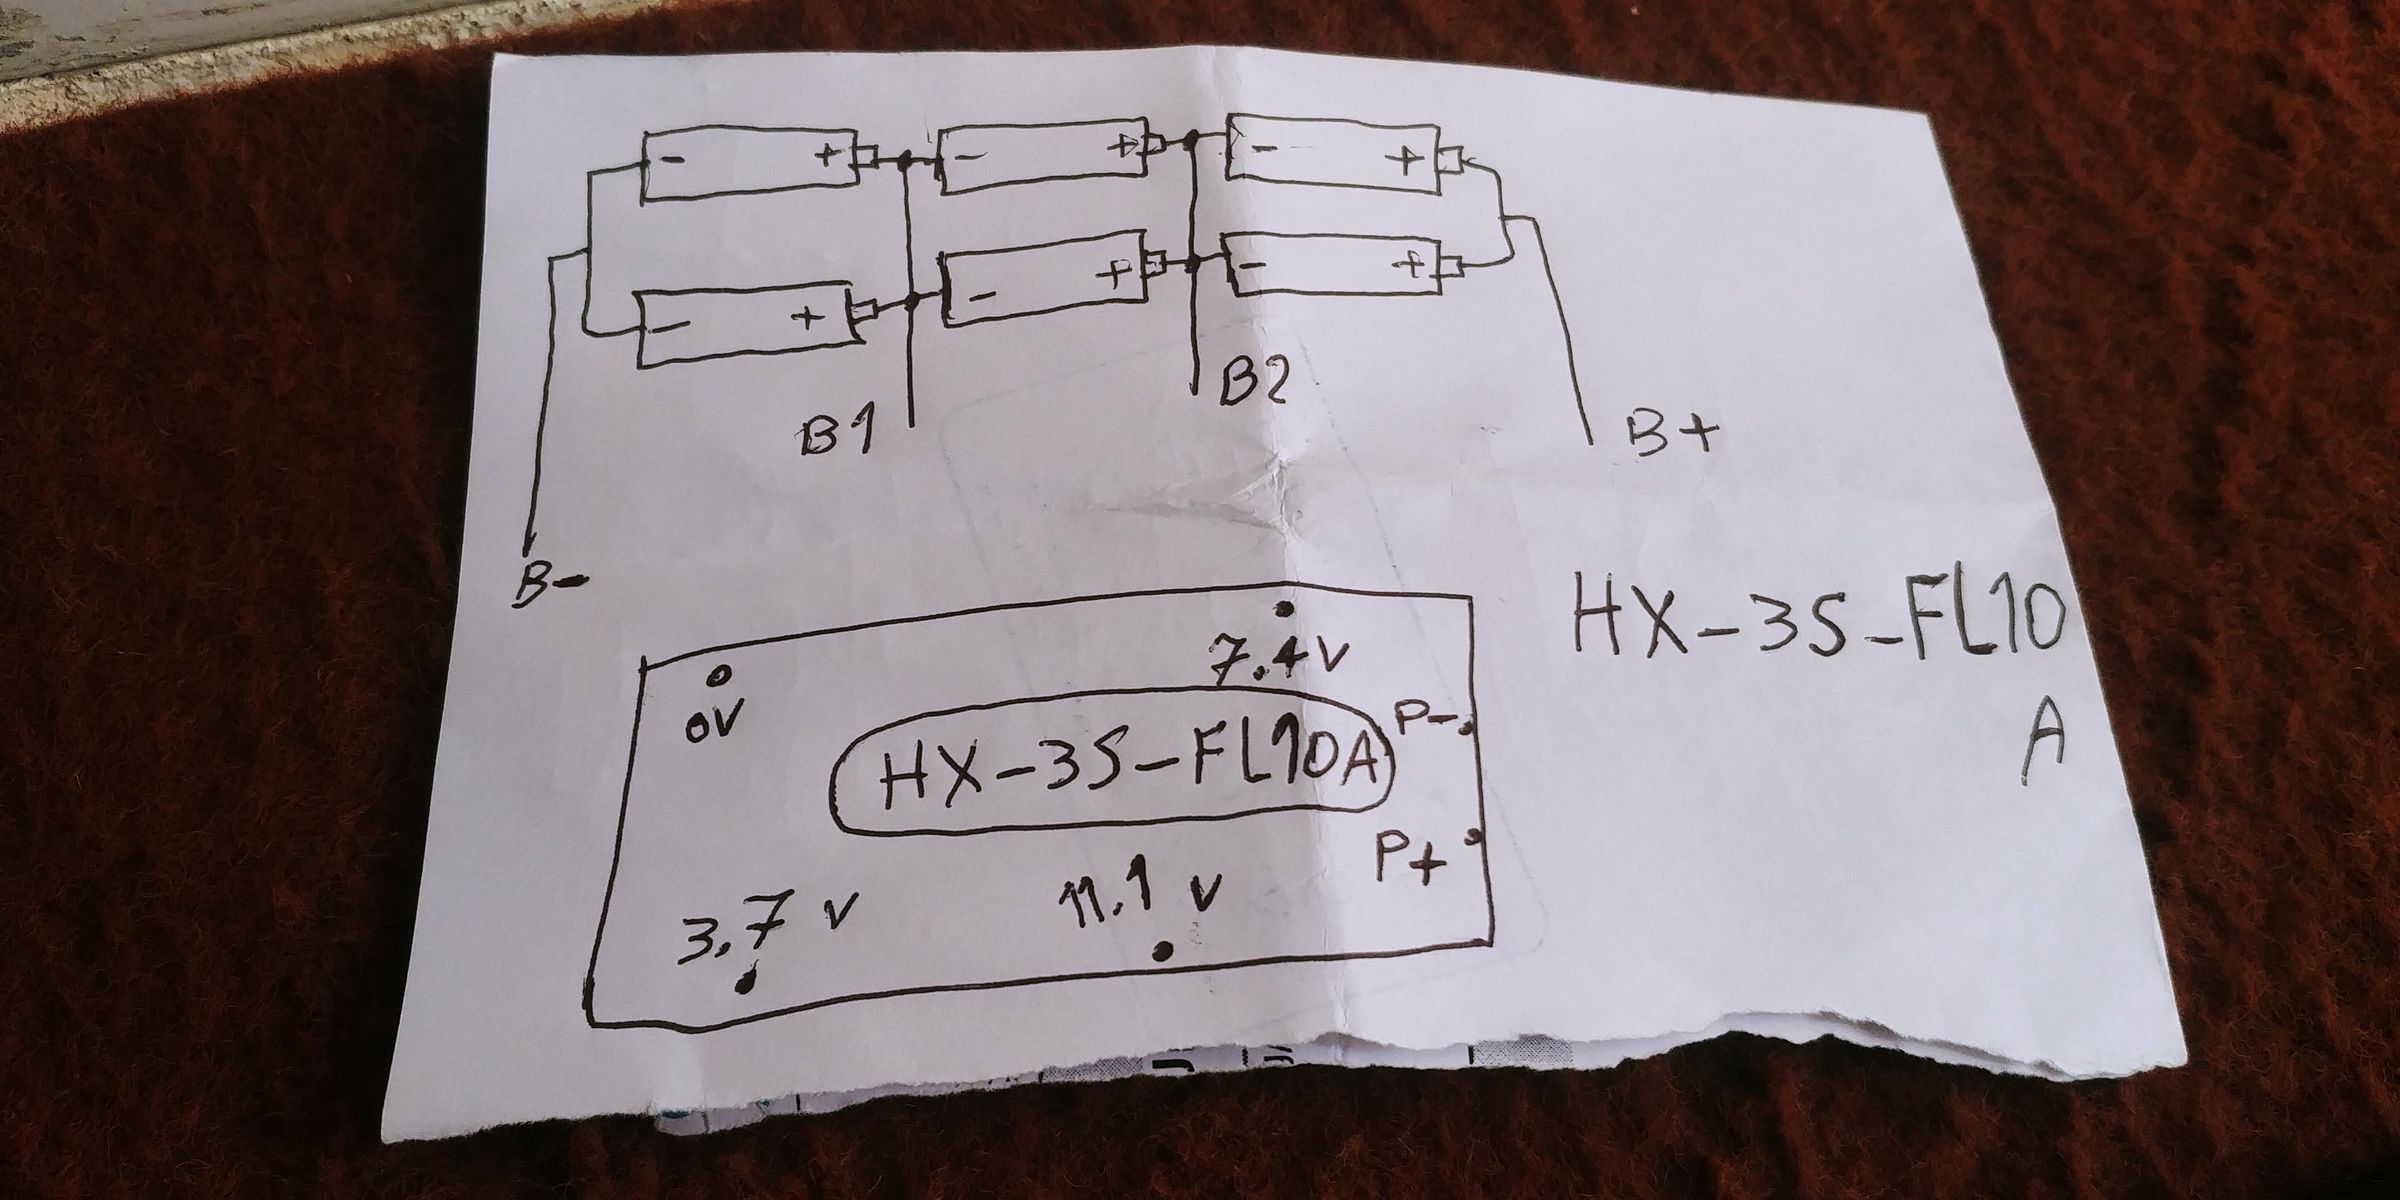 - + - + - +
- + - + - +
B1
B2
B+
B-
HX-3S-FL10
A
0V
7.4V
P-
HX-3S-FL10A
P+
3.7 V
11.1 V